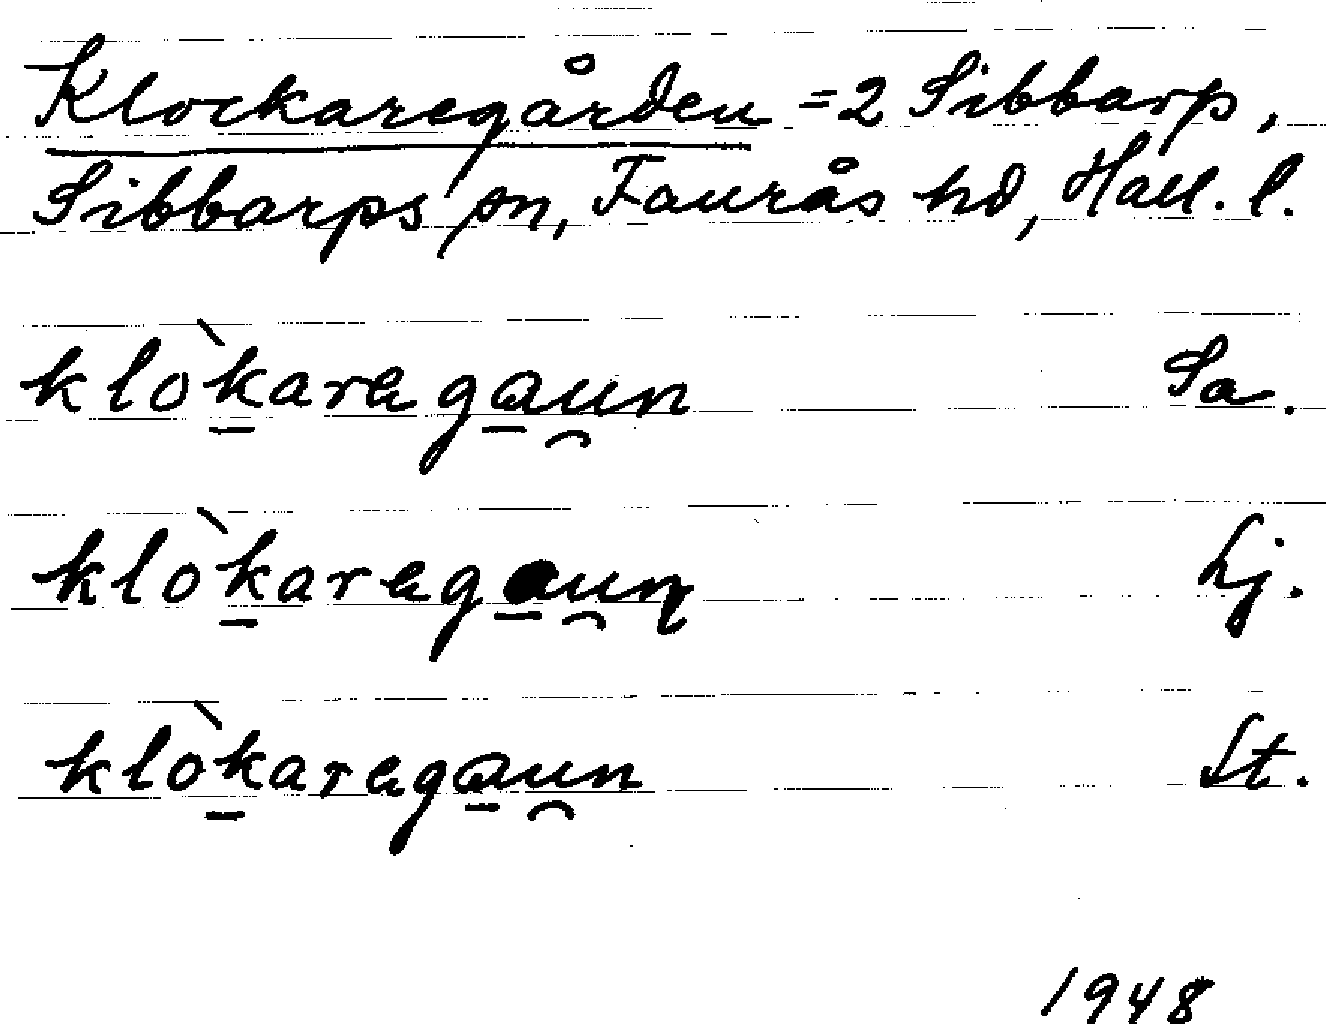 Klockaregården = 2 Sibbarp,
Sibbarps sn, Faurås hd, Hall. l.
klò̖karegaun Sa.
klò̖karegaun Lj.
klò̖karegaun St.
1948